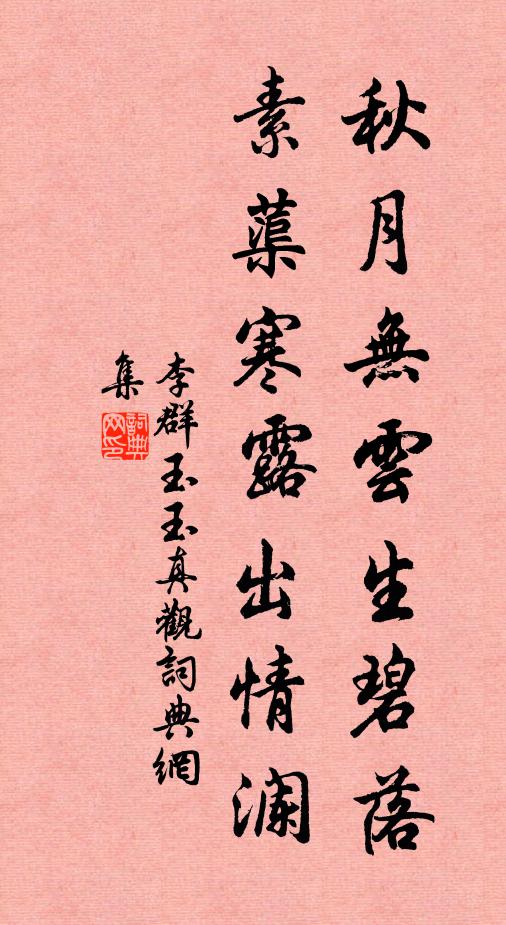 秋月無雲生碧落
素蕖寒露出情瀾
李群玉玉真觀詞典網
集
詞典
网印